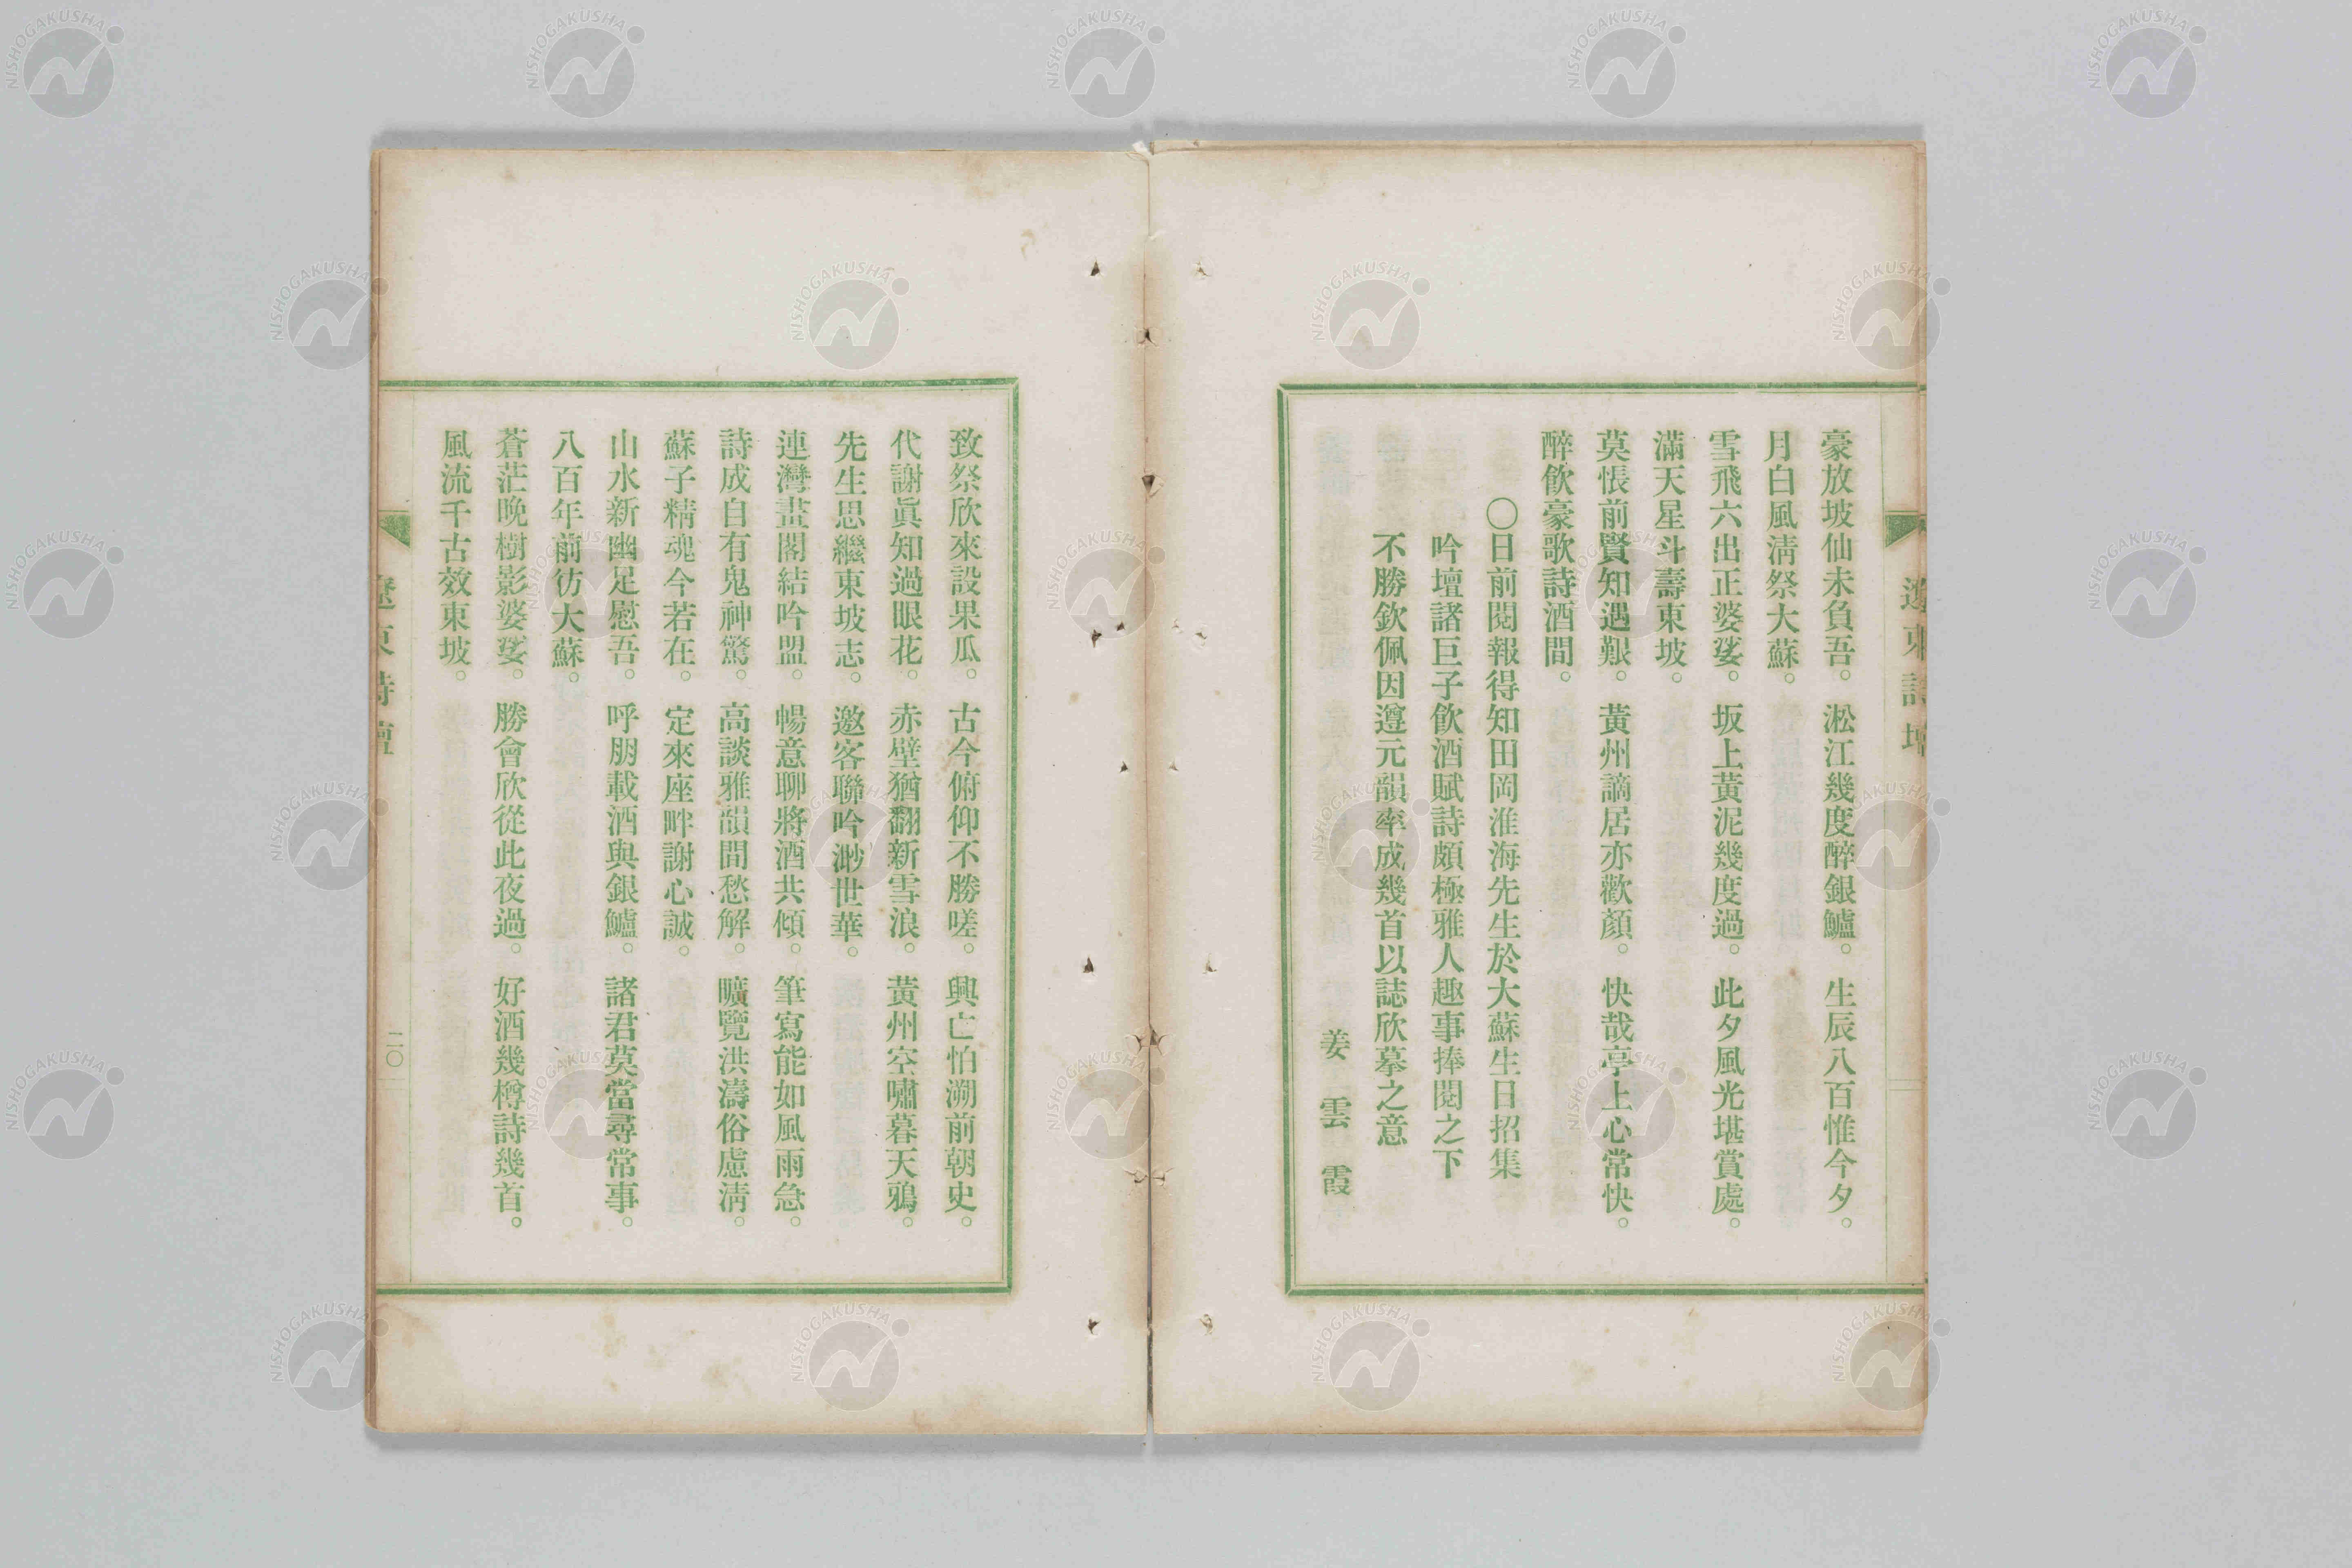 豪放坡仙未負吾。淞江幾度醉銀鱸。生辰八百惟今夕。
月白風淸祭大蘇。
雪飛六出正婆娑。坂上黃泥幾度過。此夕風光堪賞處。
滿天星斗壽東坡。
莫悵前賢知遇艱。黃州謫居亦歡顏。快哉亭上心常快。
醉飮豪歌詩酒間。
〇日前閱報得知田岡淮海先生於大蘇生日招集
吟壇諸巨子飮酒賦詩頗極雅人趣事捧閱之下
不勝欽佩因遵元韻率成幾首以誌欣摹之意
姜雲霞
致祭欣來設果瓜。古今俯仰不勝嗟。興亡怕溯前朝史。
代謝眞知過眼花。赤壁猶翻新雪浪。黃州空嘯暮天鴉。
先生思繼東坡志。邀客聯吟渺世華。
連灣畫閣結吟盟。暢意聊將酒共傾。筆寫能如風雨急。
詩成自有鬼神驚。高談雅韻間愁解。曠覽洪濤俗慮淸。
蘇子精魂今若在。定來座畔謝心誠。
山水新幽足慰吾。呼朋載酒與銀鱸。諸君莫當尋常事。
八百年前彷大蘇。
蒼茫晚樹影婆娑。勝會欣從此夜過。好酒幾樽詩幾首。
風流千古效東坡。
遼東詩壇
二〇
NISHOGAKUSHA